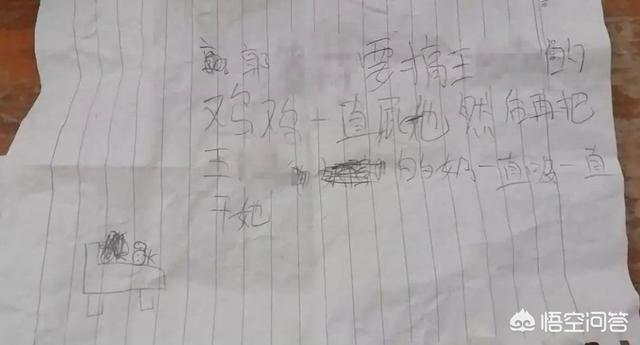 郭 要搞王 的
鸡鸡一直 她然后再把
王 的奶一直 一直
干她
悟空问答